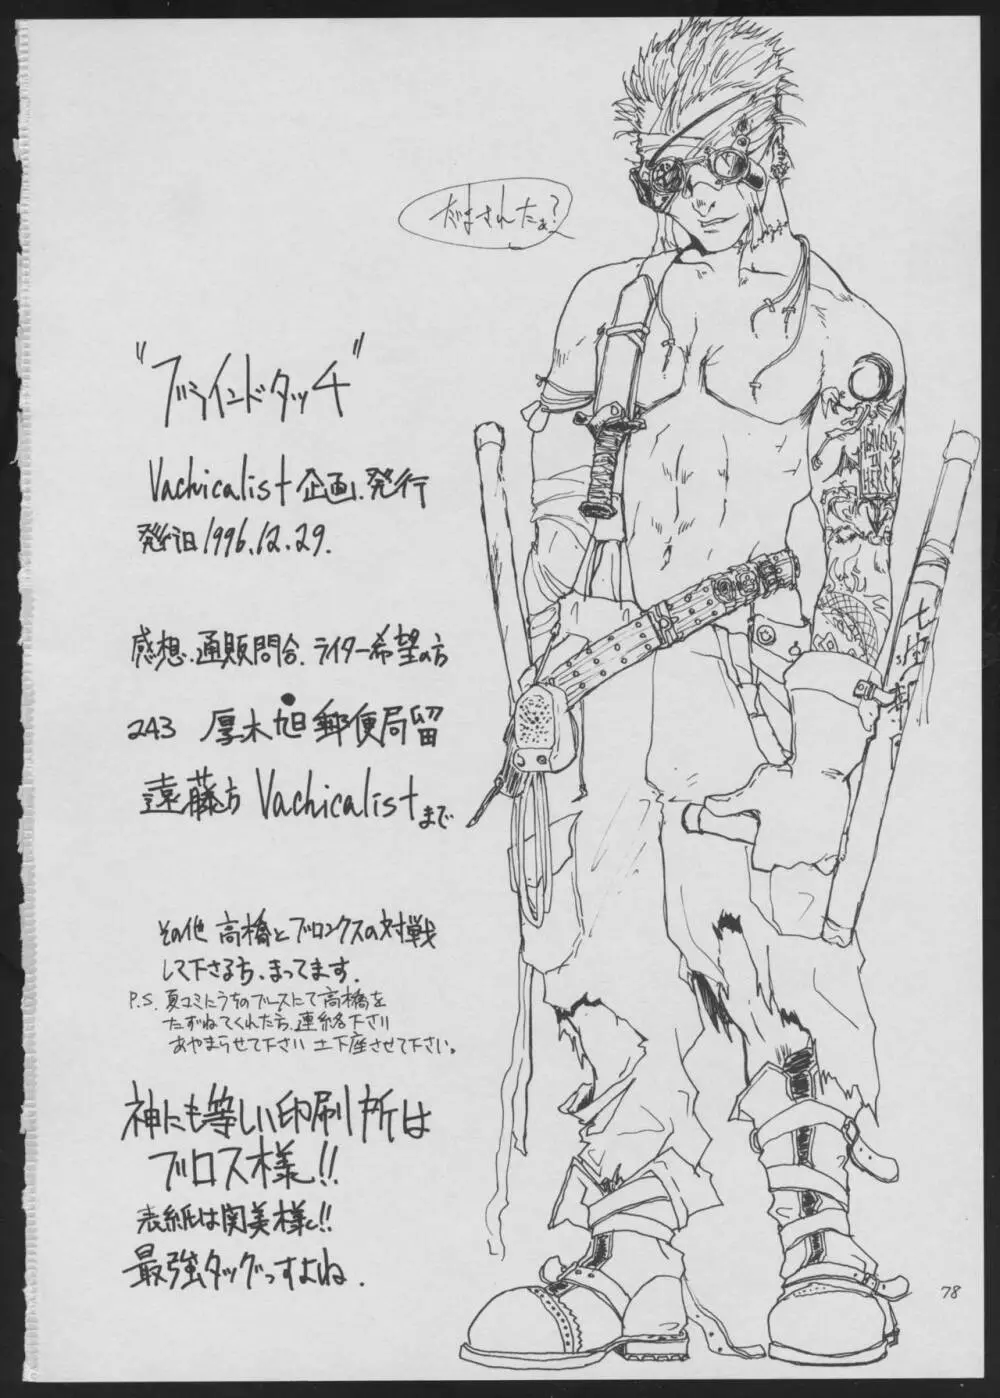 だまされたぁ?
"ブラインドタッチ"
Vachicalist 企画、発行
発行日 1996.12.29.
感想、通販問合、ライター希望の方
243 厚木旭郵便局留
遠藤方 Vachicalistまで
その他 高橋とブロンクスの対戦
して下さる方、まってます.
P.S. 夏コミにうちのブースにて高橋を
たずねてくれた方、連絡下さい
あやまらせて下さい 土下座させて下さい。
神にも等しい印刷所は
ブロス様!!
表紙は関美様!!
最強タッグっすよね.
HEAVENS
78